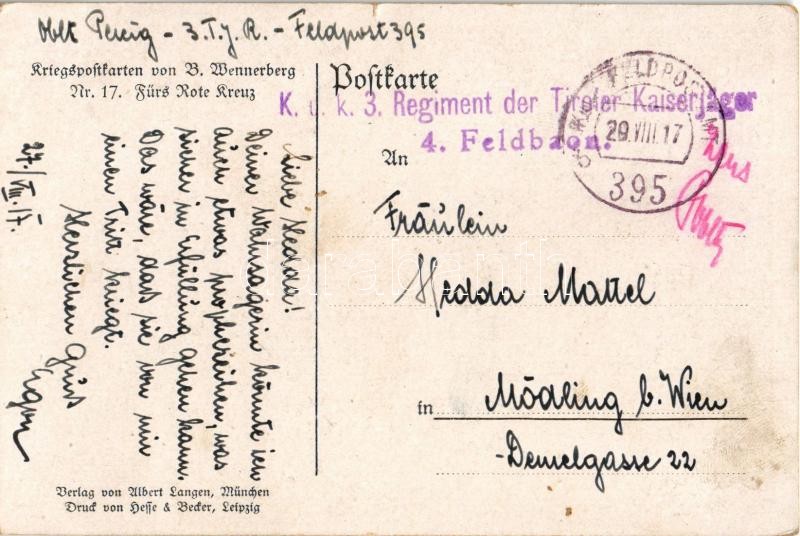 Oblt Perzig - 3. T.J.R. - Feldpost 395
Kriegspostkarten von B. Wennerberg
Nr. 17. Fürs Rote Kreuz
Postkarte
K. u. k. 3. Regiment der Tiroler Kaiserjäger
4. Feldbaon.
FELDPOSTAMT
29.VIII.17
395
An
Fräulein
Hedda Mattel
in Mödling b. Wien
Demelgasse 22
27./VIII.17.
Liebe Hedda!
Deiner Wahrsagerin könnte ich
auch etwas prophezeihen, was
sicher in Erfüllung gehen kann.
Das wäre, dass sie von mir
einen Tritt kriegt.
Herzlichen Gruss
Egon
Verlag von Albert Langen, München
Druck von Hesse & Becker, Leipzig